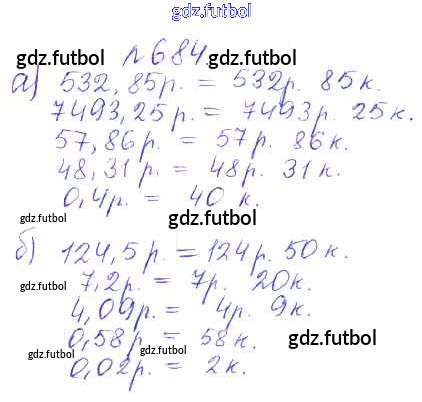 gdz.futbol
gdz.futbol №684. gdz.futbol
а) 532,85р. = 532р. 85к.
7493,25р. = 7493р. 25к.
57,86р. = 57р. 86к.
48,31р. = 48р. 31к.
0,4р. = 40к.
gdz.futbol gdz.futbol
б) 124,5р. = 124р. 50к.
gdz.futbol 7,2р. = 7р. 20к.
4,09р. = 4р. 9к.
0,58р. = 58к. gdz.futbol
gdz.futbol gdz.futbol
0,02р. = 2к.